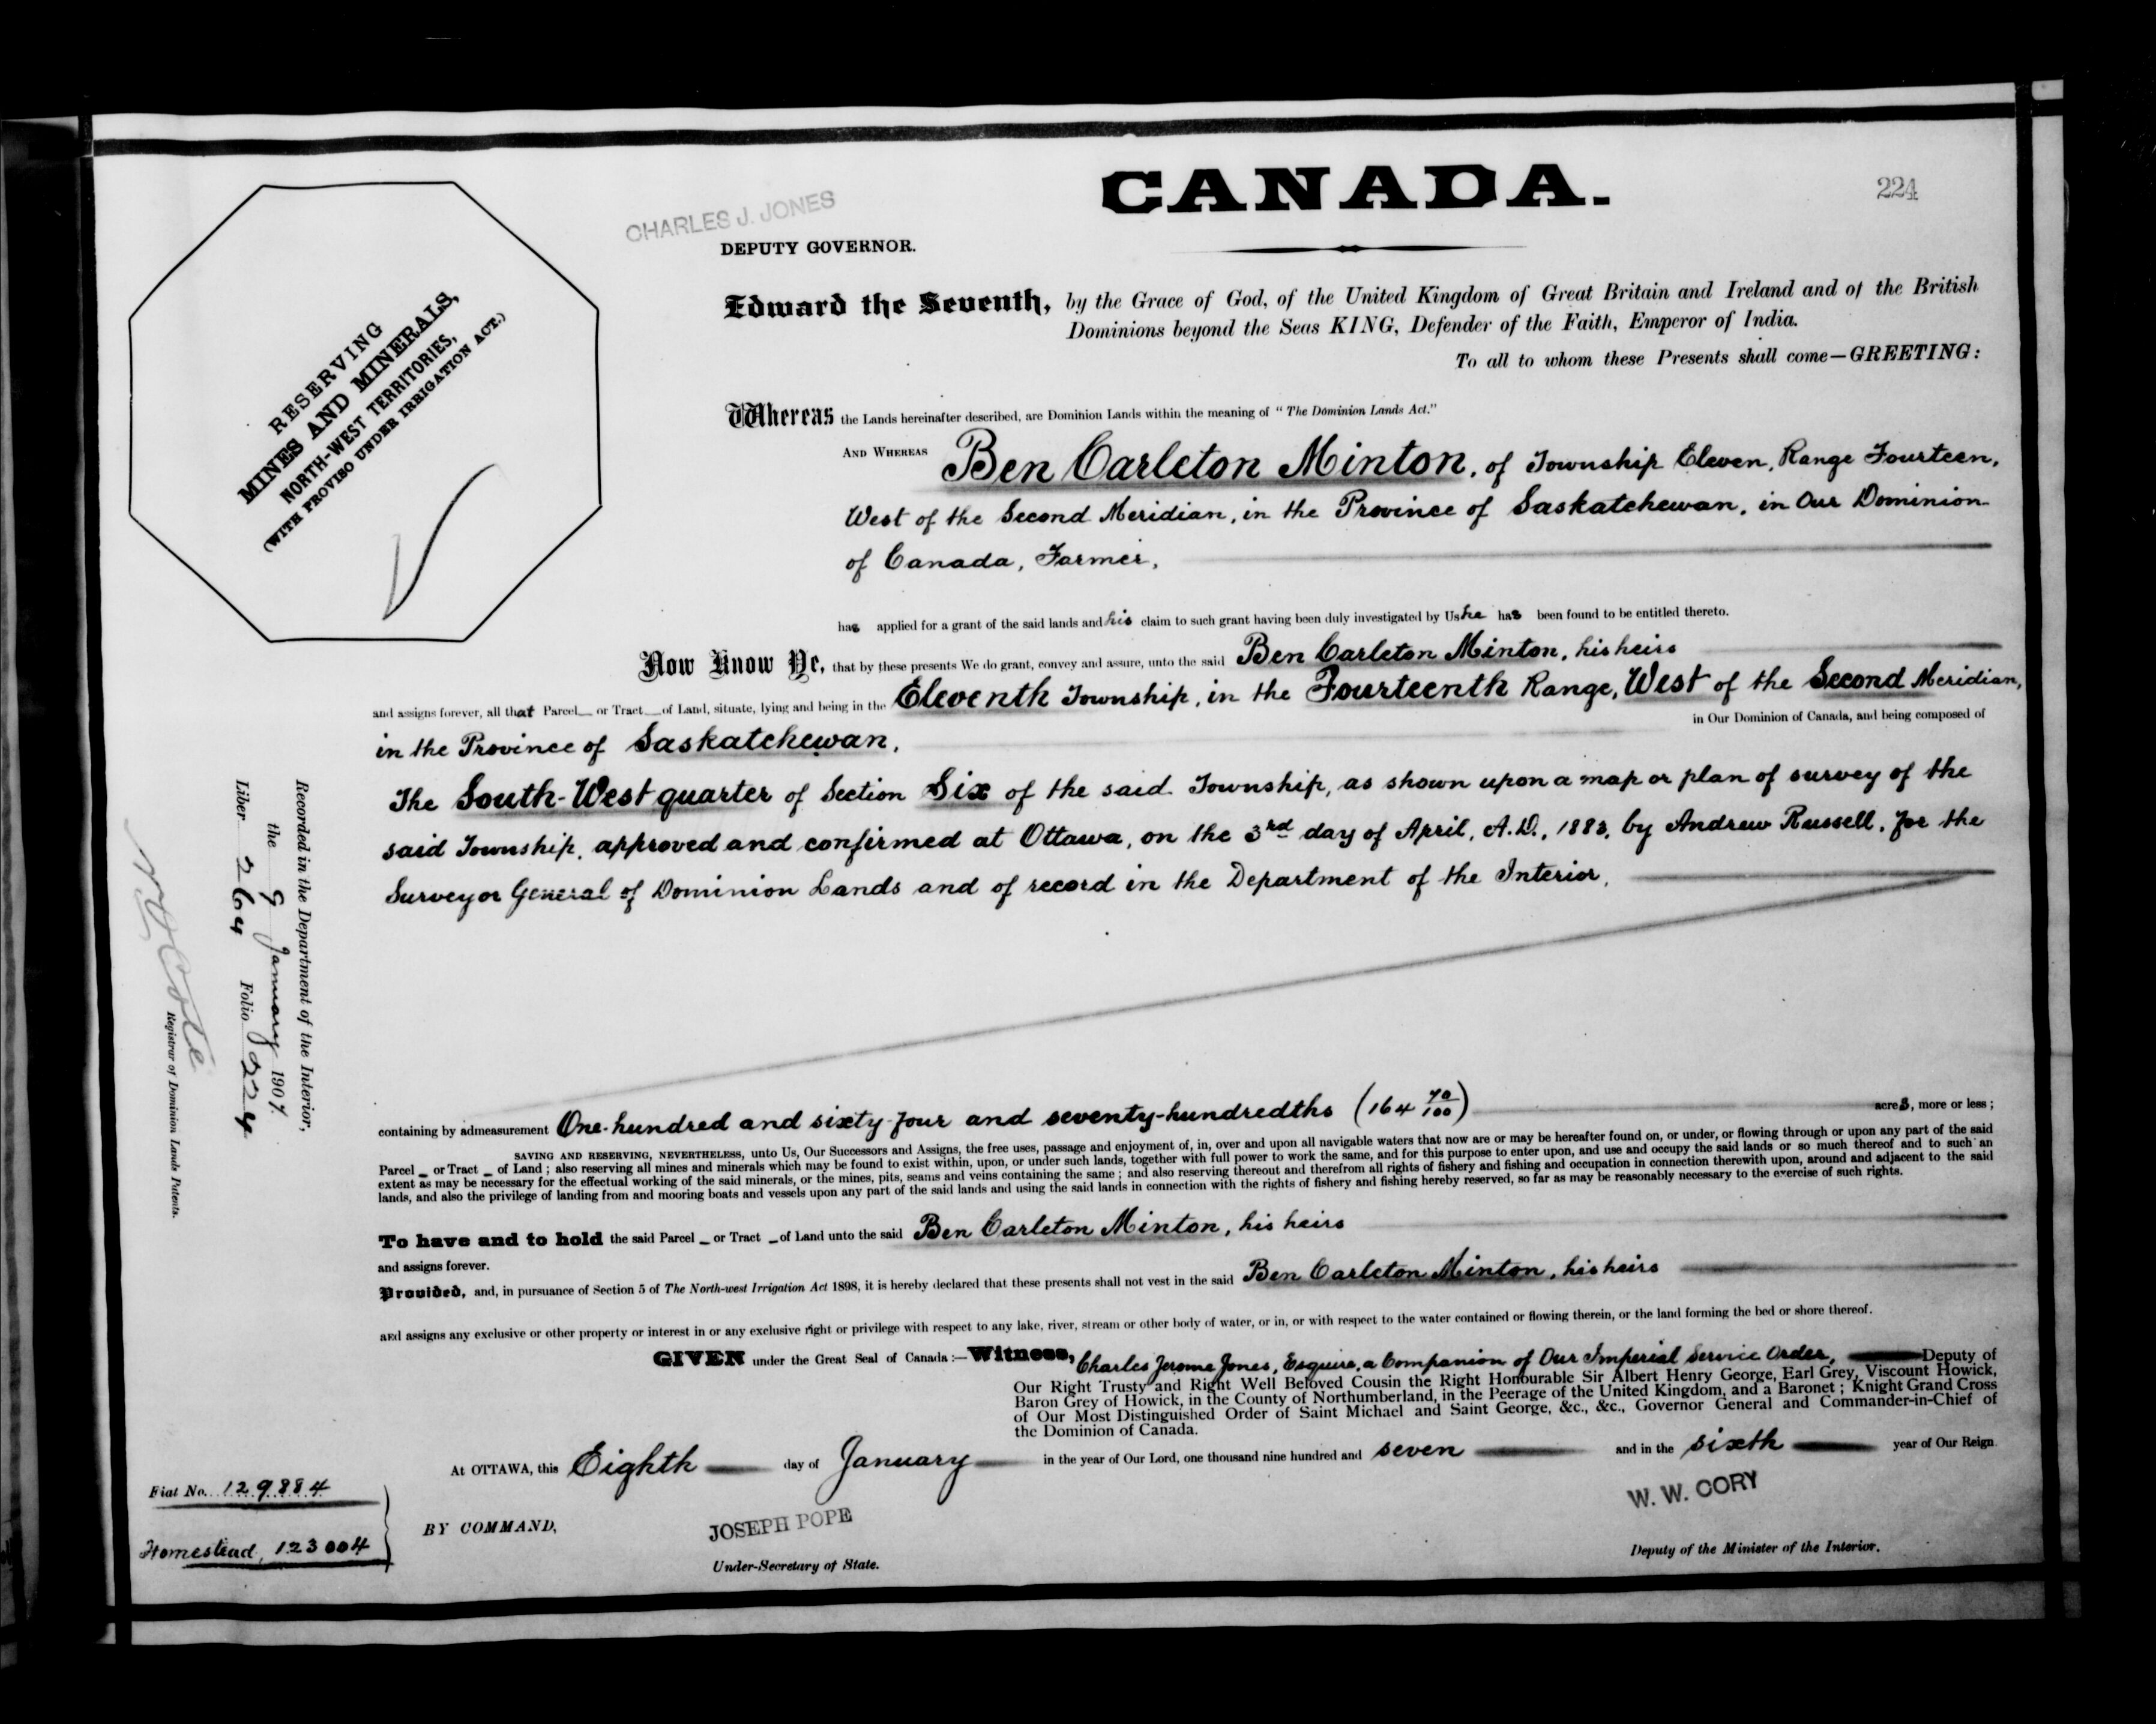 CANADA.
224
CHARLES J. JONES
DEPUTY GOVERNOR.
RESERVING
MINES AND MINERALS,
NORTH-WEST TERRITORIES,
(WITH PROVISO UNDER IRRIGATION ACT.)
Edward the Seventh, by the Grace of God, of the United Kingdom of Great Britain and Ireland and of the British
Dominions beyond the Seas KING, Defender of the Faith, Emperor of India.
To all to whom these Presents shall come—GREETING:
Whereas the Lands hereinafter described, are Dominion Lands within the meaning of "The Dominion Lands Act."
AND WHEREAS Ben Carleton Minton, of Township Eleven, Range Fourteen,
West of the Second Meridian, in the Province of Saskatchewan, in Our Dominion
of Canada, Farmer,
has applied for a grant of the said lands and his claim to such grant having been duly investigated by Us he has been found to be entitled thereto.
Now Know Ye, that by these presents We do grant, convey and assure, unto the said Ben Carleton Minton, his heirs
and assigns forever, all that Parcel or Tract of Land, situate, lying and being in the Eleventh Township, in the Fourteenth Range, West of the Second Meridian,
in the Province of Saskatchewan, in Our Dominion of Canada, and being composed of
The South-West quarter of Section Six of the said Township, as shown upon a map or plan of survey of the
said Township, approved and confirmed at Ottawa, on the 3rd day of April, A.D., 1883, by Andrew Russell, for the
Surveyor General of Dominion Lands and of record in the Department of the Interior,
containing by admeasurement One-hundred and sixty-four and seventy-hundredths (164 70/100) acres, more or less;
SAVING AND RESERVING, NEVERTHELESS, unto Us, Our Successors and Assigns, the free uses, passage and enjoyment of, in, over and upon all navigable waters that now are or may be hereafter found on, or under, or flowing through or upon any part of the said
Parcel or Tract of Land; also reserving all mines and minerals which may be found to exist within, upon, or under such lands, together with full power to work the same, and for this purpose to enter upon, and use and occupy the said lands or so much thereof and to such an
extent as may be necessary for the effectual working of the said minerals, or the mines, pits, seams and veins containing the same; and also reserving thereout and therefrom all rights of fishery and fishing and occupation in connection therewith upon, around and adjacent to the said
lands, and also the privilege of landing from and mooring boats and vessels upon any part of the said lands and using the said lands in connection with the rights of fishery and fishing hereby reserved, so far as may be reasonably necessary to the exercise of such rights.
To have and to hold the said Parcel or Tract of Land unto the said Ben Carleton Minton, his heirs
and assigns forever.
Provided, and, in pursuance of Section 5 of The North-west Irrigation Act 1898, it is hereby declared that these presents shall not vest in the said Ben Carleton Minton, his heirs
and assigns any exclusive or other property or interest in or any exclusive right or privilege with respect to any lake, river, stream or other body of water, or in, or with respect to the water contained or flowing therein, or the land forming the bed or shore thereof.
GIVEN under the Great Seal of Canada:—Witness, Charles Jerome Jones, Esquire, a Companion of Our Imperial Service Order, Deputy of
Our Right Trusty and Right Well Beloved Cousin the Right Honourable Sir Albert Henry George, Earl Grey, Viscount Howick,
Baron Grey of Howick, in the County of Northumberland, in the Peerage of the United Kingdom, and a Baronet; Knight Grand Cross
of Our Most Distinguished Order of Saint Michael and Saint George, &c., &c., Governor General and Commander-in-Chief of
the Dominion of Canada.
At OTTAWA, this Eighth day of January in the year of Our Lord, one thousand nine hundred and seven and in the sixth year of Our Reign
W. W. CORY
Deputy of the Minister of the Interior.
BY COMMAND,
JOSEPH POPE
Under-Secretary of State.
Fiat No. 129884
Homestead, 123004
Recorded in the Department of the Interior,
the 9 January 1907.
Liber 264 Folio 224
N O Coté
Registrar of Dominion Lands Patents.